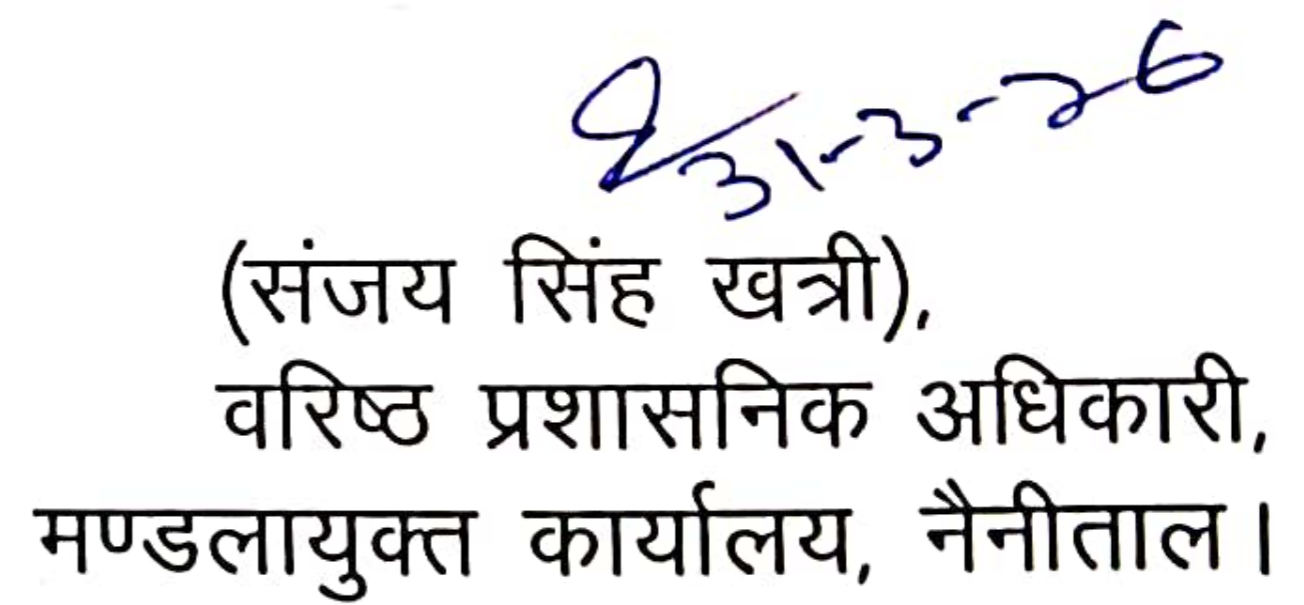 31-3-26
(संजय सिंह खत्री),
वरिष्ठ प्रशासनिक अधिकारी,
मण्डलायुक्त कार्यालय, नैनीताल।